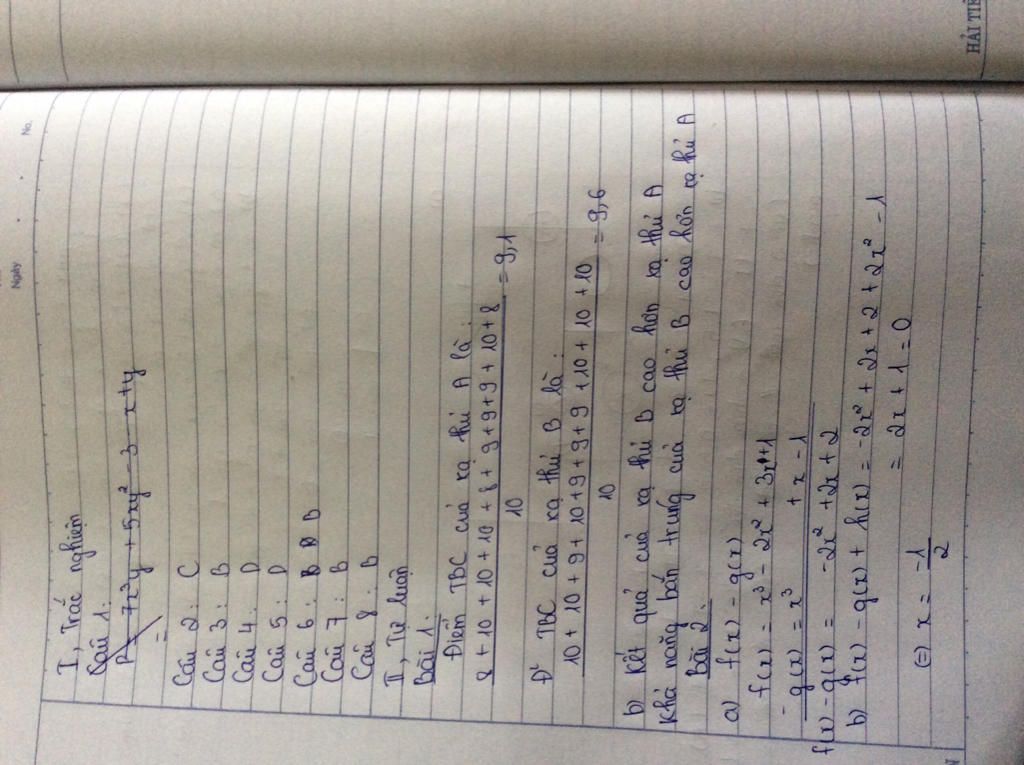 No.
Ngày
HẢI TIẾ
I, Trắc nghiệm
Câu 1:
P = 7x³y + 5xy² - 3 - x + y
=
Câu 2: C
Câu 3: B
Câu 4: D
Câu 5: D
Câu 6: B D D
Câu 7: B
Câu 8: B
II, Tự luận
Bài 1.
Điểm TBC của xạ thủ A là:
8 + 10 + 10 + 10 + 8 + 9 + 9 + 9 + 10 + 8 = 9,1
10
Đ² TBC của xạ thủ B là:
10 + 10 + 9 + 10 + 9 + 9 + 9 + 10 + 10 + 10 = 9,6
10
b) Kết quả của xạ thủ B cao hơn xạ thủ A
Khả năng bắn trúng của xạ thủ B cao hơn xạ thủ A
Bài 2.
a) f(x) - g(x)
f(x) = x³ - 2x² + 3x + 1
- g(x) = x³ + x - 1
f(x) - g(x) = -2x² + 2x + 2
b) f(x) - g(x) + h(x) = -2x² + 2x + 2 + 2x² - 1
= 2x + 1 = 0
(=) x = -1/2